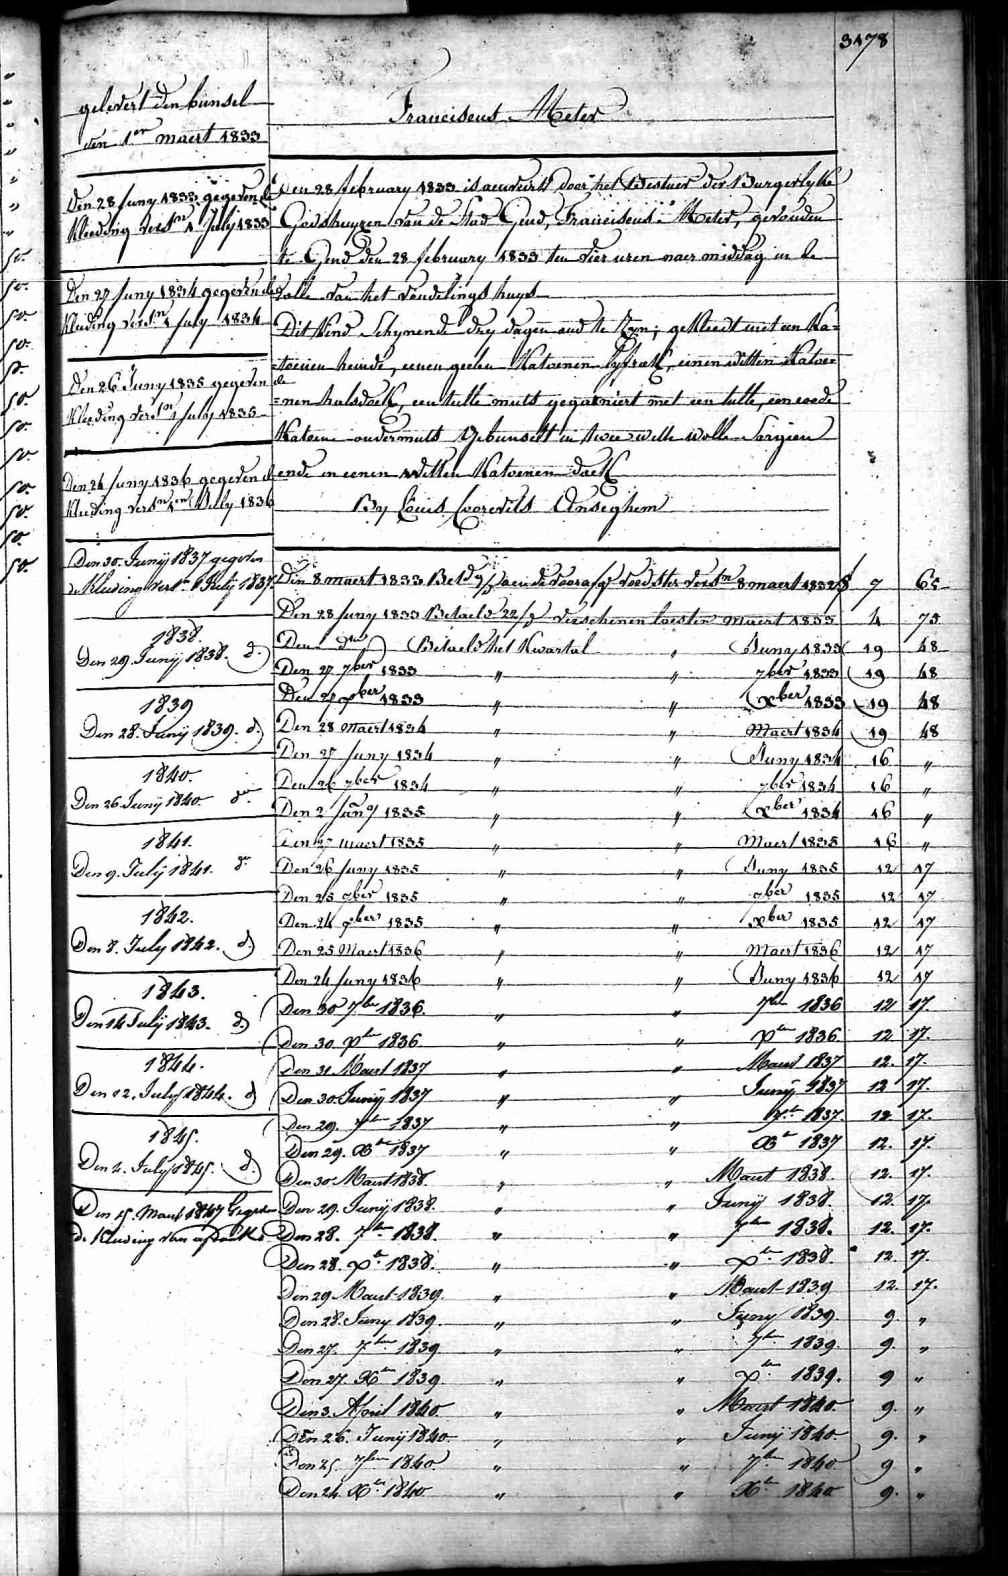 3178
gelevert den bunsel
den 1en maert 1833
Franciscus Meter
Den 28 juny 1833 gegeven de
kleeding versn 1 July 1833
Den 27 Juny 1834 gegeven de
kleeding versn 1 July 1834
Den 26 Juny 1835 gegeven de
kleeding versn 1 July 1835
Den 24 Juny 1836 gegeven de
kleeding versn 1en July 1836
Den 30 Junij 1837 gegeven
de kleeding versn 1 Julij 1837
1838.
Den 29. Junij 1838. d.
1839
Den 28. Junij 1839. d
1840.
Den 26 Junij 1840 do
1841.
Den 9. Julij 1841. do
1842.
Den 8. July 1842. d
1843.
Den 14 Julij 1843. d
1844.
Den 12. July 1844. d
1845.
Den 2. July 1845. d.
Den 15. Maert 1847 Gegeven
de Kleeding van
Den 28 february 1833 is door het Bestuer der Burgerlyke
Godshuyzen van de Stad Gend, Franciscus Meter, gevonden
te Gend den 28 february 1833 ten vier uren naer middag in de
rolle van het vondelings huys
Dit kind schynende dry dagen oud te zyn; gekleed met een ka=
=toenen hemde, eenen geelen katoenen lyfrok, eenen witten katoe=
=nen halsdoek, een tulle muts gegarniert met een tulle, een roode
katoene ondermuts gebunselt in twee witte wolle sargien
ende in eenen witten katoenen doek
By Louis Anseghem
Den 8 maert 1833 Betd aen de voedster versn 8 maert 1832 f 7 65
Den 28 Juny 1833 Betaeld verschenen maert 1833 4 73
Den do Betaeld het kwartal " Juny 1833 19 48
Den 27 7ber 1833 " " 7ber 1833 19 48
Den 27 xber 1833 " " xber 1833 19 48
Den 28 maert 1834 " " Maert 1834 19 48
Den 27 Juny 1834 " " Juny 1834 16 "
Den 26 7ber 1834 " " 7ber 1834 16 "
Den 2 Jany 1835 " " xber 1834 16 "
Den 27 maert 1835 " " Maert 1835 16 "
Den 26 Juny 1835 " " Juny 1835 12 17
Den 25 7ber 1835 " " 7ber 1835 12 17
Den 24 xber 1835 " " xber 1835 12 17
Den 25 Maert 1836 " " Maert 1836 12 17
Den 24 Juny 1836 " " Juny 1836 12 17
Den 30 7ber 1836. " " 7ber 1836 12 17.
Den 30 xber 1836. " " xber 1836 12 17.
Den 31 Maert 1837 " " Maert 1837 12. 17.
Den 30 Junij 1837 " " Junij 1837 12 17.
Den 29. 7ber 1837 " " 7ber 1837. 12. 17.
Den 29. Xber 1837 " " Xber 1837 12. 17.
Den 30 Maert 1838. " " Maert 1838. 12. 17.
Den 29. Junij 1838. " " Junij 1838. 12. 17.
Den 28. 7ber 1838. " " 7ber 1838. 12. 17.
Den 28. xber 1838. " " xber 1838. 12. 17.
Den 29 Maert 1839. " " Maert 1839 12. 17.
Den 28. Juny 1839. " " Juny 1839. 9. "
Den 27. 7ber 1839 " " 7ber 1839. 9. "
Den 27. Xber 1839 " " xber 1839. 9 "
Den 3. April 1840. " " Maert 1840 9. "
Den 26. Junij 1840 " " Junij 1840 9. "
Den 25. 7ber 1840. " " 7ber 1840 9 "
Den 24. Xber 1840 " " Xber 1840 9. "